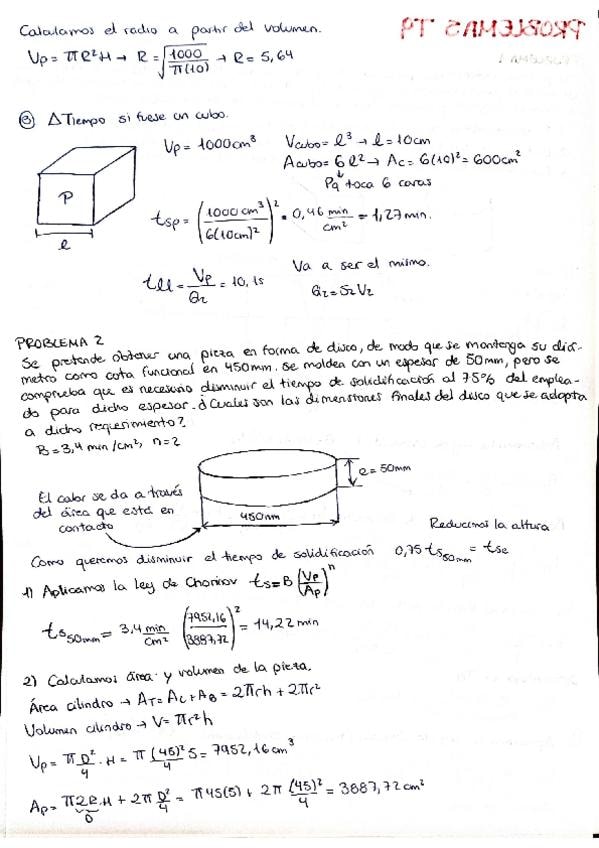 PROBLEMAS T9
Calculamos el radio a partir del volumen.
Vp = πR²H → R = √(1000/π(10)) → R = 5,64
③ Δ Tiempo si fuese un cubo.
Vp = 1000cm³ Vcubo = l³ → l = 10cm
Acubo = 6l² → Ac = 6(10)² = 600cm²
Pq toca 6 caras
P
l
tsp = (1000cm³/6(10cm)²)² · 0,46 min/cm² = 1,27min.
Va a ser el mismo.
tll = Vp/Q₂ = 10,1s Q₂ = S₂V₂
PROBLEMA 2
Se pretende obtener una pieza en forma de disco, de modo que se mantenga su diá-
metro como cota funcional en 450mm. Se moldea con un espesor de 50mm, pero se
comprueba que es necesario disminuir el tiempo de solidificación al 75% del emplea-
do para dicho espesor. ¿Cuales son las dimensiones finales del disco que se adapta
a dicho requerimiento?
B = 3,4 min/cm², n=2
e = 50mm
El calor se da a través
del área que está en
contacto
450mm
Reducimos la altura
Como queremos disminuir el tiempo de solidificación 0,75 ts50mm = tse
1) Aplicamos la ley de Chorinov ts = B (Vp/Ap)ⁿ
ts50mm = 3,4 min/cm² (7952,16/3887,72)² = 14,22 min
2) Calculamos área y volumen de la pieza.
Área cilindro → AT = AC + AB = 2πrh + 2πr²
Volumen cilindro → V = πr²h
Vp = π D²/4 · H = π (45)²/4 5 = 7952,16cm³
Ap = π2R·H + 2π D²/4 = π45(5) + 2π (45)²/4 = 3887,72cm²
D